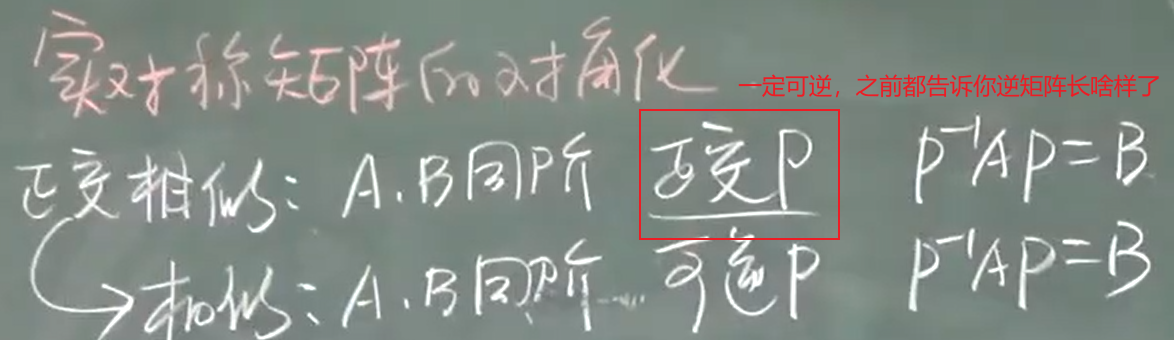 实对称矩阵的对角化
一定可逆，之前都告诉你逆矩阵长啥样了
正交相似：A.B同阶 正交P P⁻¹AP=B
相似：A.B同阶 可逆P P⁻¹AP=B